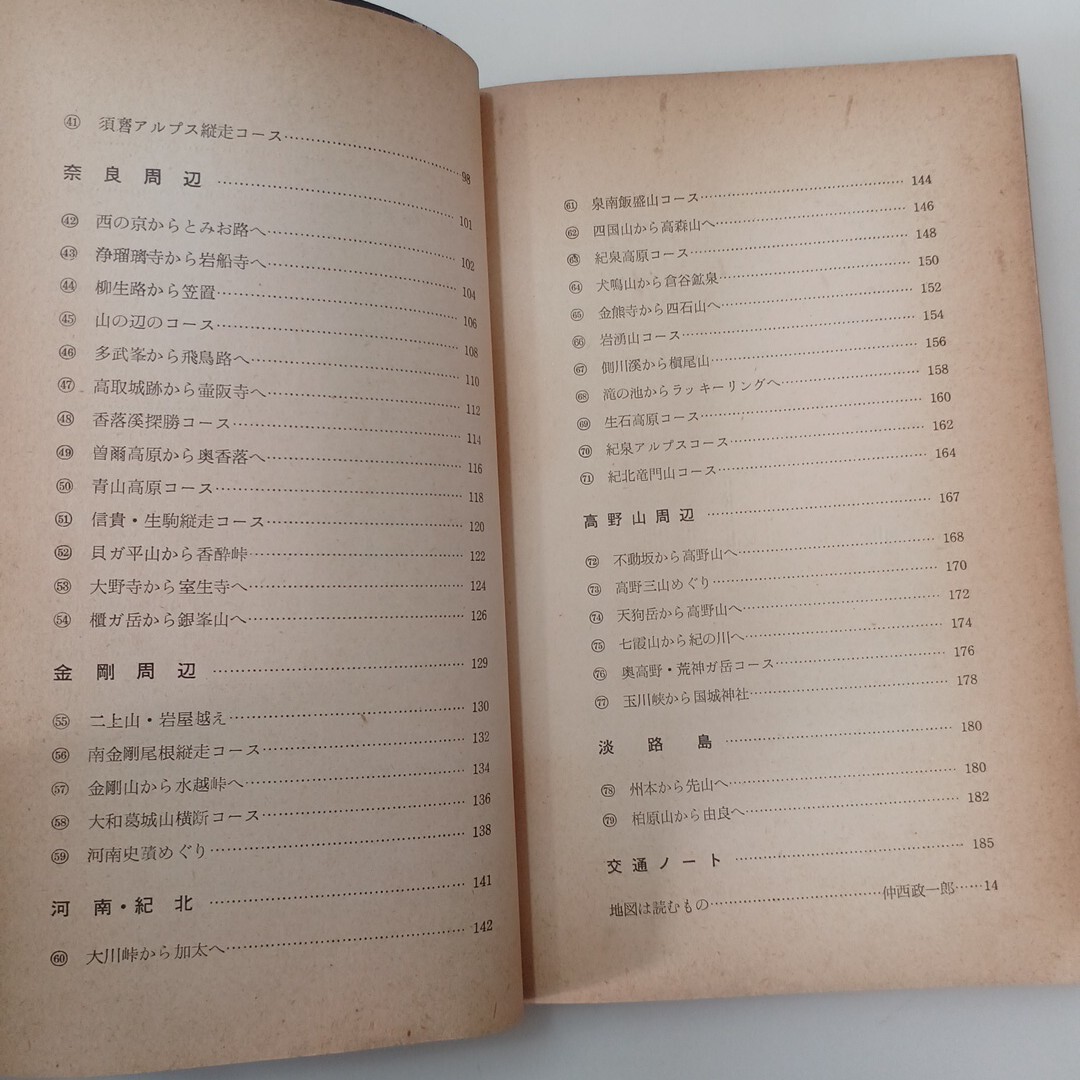 ㊶ 須磨アルプス縦走コース…………98
奈良周辺…………101
㊷ 西の京からとみお路へ…………102
㊸ 浄瑠璃寺から岩船寺へ…………104
㊹ 柳生路から笠置…………106
㊺ 山の辺のコース…………108
㊻ 多武峯から飛鳥路へ…………110
㊼ 高取城跡から壷阪寺へ…………112
㊽ 香落溪探勝コース…………114
㊾ 曽爾高原から奥香落へ…………116
㊿ 青山高原コース…………118
51 信貴・生駒縦走コース…………120
52 貝ガ平山から香酔峠…………122
53 大野寺から室生寺へ…………124
54 櫃ガ岳から銀峯山へ…………126
金剛周辺…………129
55 二上山・岩屋越え…………130
56 南金剛尾根縦走コース…………132
57 金剛山から水越峠へ…………134
58 大和葛城山横断コース…………136
59 河南史蹟めぐり…………138
河南・紀北…………141
60 大川峠から加太へ…………142
61 泉南飯盛山コース…………144
62 四国山から高森山へ…………146
63 紀泉高原コース…………148
64 犬鳴山から倉谷鉱泉…………150
65 金熊寺から四石山へ…………152
66 岩湧山コース…………154
67 側川溪から槇尾山…………156
68 滝の池からラッキーリングへ…………158
69 生石高原コース…………160
70 紀泉アルプスコース…………162
71 紀北竜門山コース…………164
高野山周辺…………167
72 不動坂から高野山へ…………168
73 高野三山めぐり…………170
74 天狗岳から高野山へ…………172
75 七霞山から紀の川へ…………174
76 奥高野・荒神ガ岳コース…………176
77 玉川峡から国城神社…………178
淡路島…………180
78 州本から先山へ…………180
79 柏原山から由良へ…………182
交通ノート…………185
地図は読むもの…………仲西政一郎……14